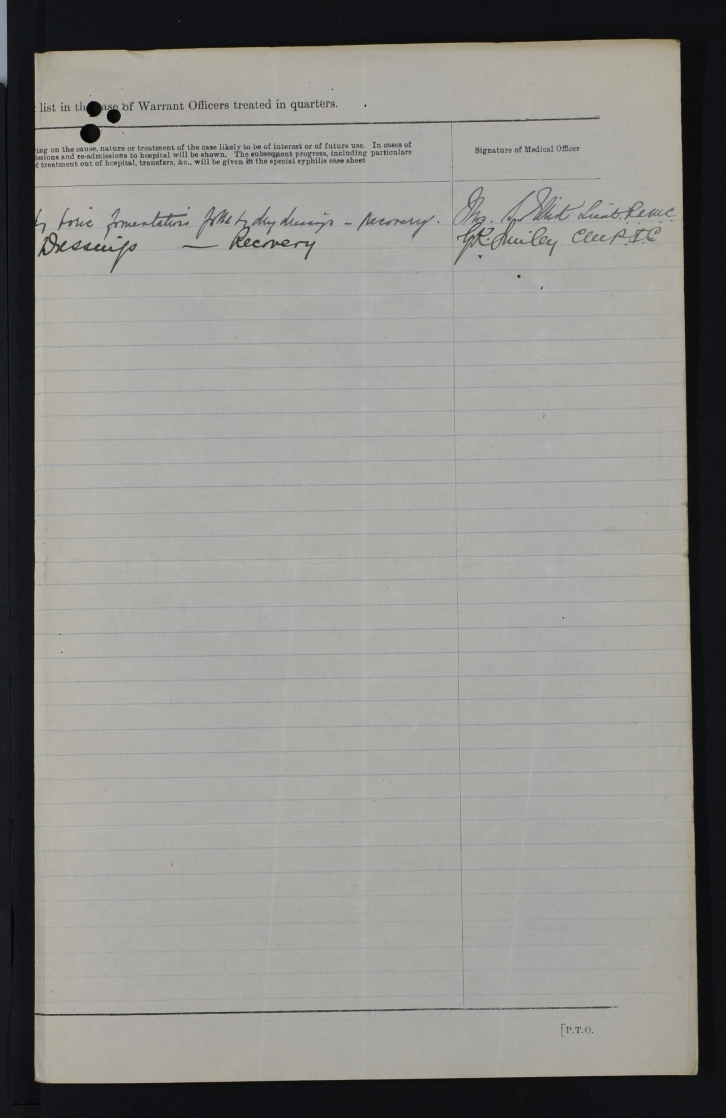 list in the case of Warrant Officers treated in quarters.
ring on the cause, nature or treatment of the case likely to be of interest or of future use. In cases of
issions and re-admissions to hospital will be shown. The subsequent progress, including particulars
f treatment out of hospital, transfers, &c., will be given in the special syphilis case sheet
Signature of Medical Officer
by boric fomentations folld by dry dressings – recovery.
Lieut. R.A.M.C.
Dressings — Recovery
[P.T.O.